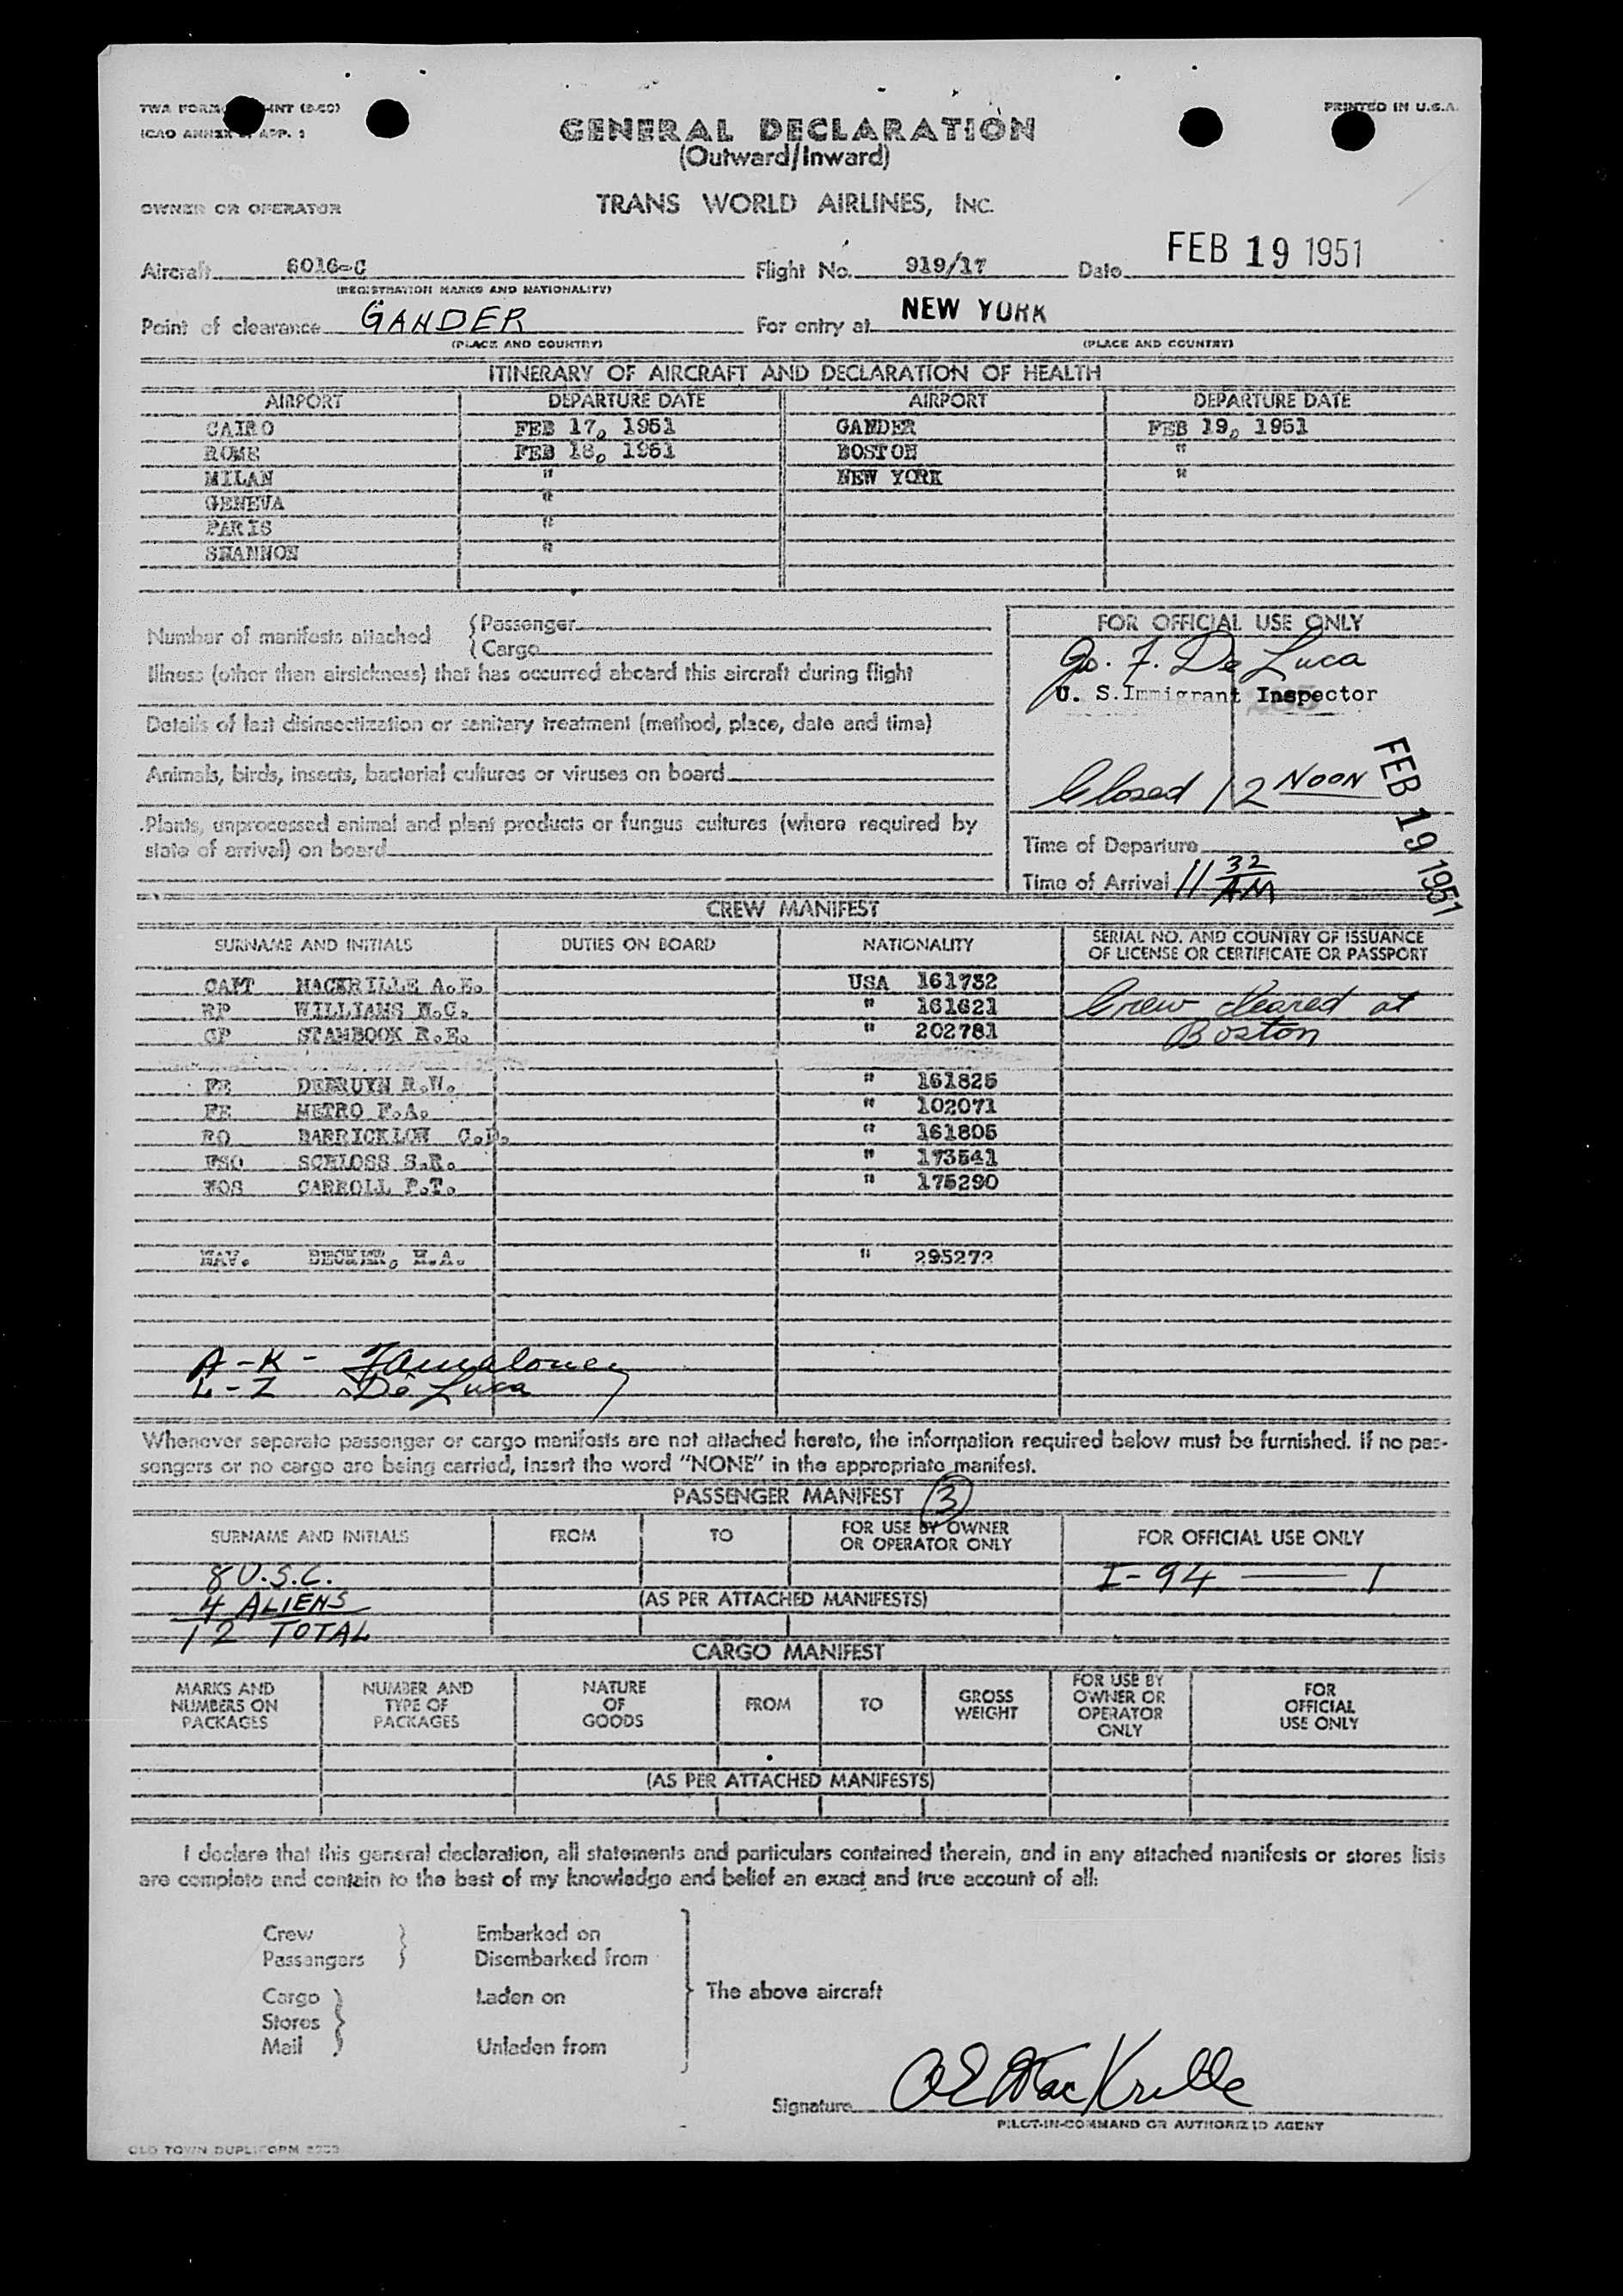 PRINTED IN U.S.A.
GENERAL DECLARATION
(Outward/Inward)
OWNER OR OPERATOR TRANS WORLD AIRLINES, INC.
Aircraft 6016-C Flight No. 919/17 Date FEB 19 1951
(REGISTRATION MARKS AND NATIONALITY)
Point of clearance GANDER For entry at NEW YORK
(PLACE AND COUNTRY) (PLACE AND COUNTRY)
ITINERARY OF AIRCRAFT AND DECLARATION OF HEALTH
AIRPORT DEPARTURE DATE AIRPORT DEPARTURE DATE
CAIRO FEB 17, 1951 GANDER FEB 19, 1951
ROME FEB 18, 1951 BOSTON "
MILAN " NEW YORK "
GENEVA "
PARIS "
SHANNON "
Number of manifests attached { Passenger
{ Cargo
Illness (other than airsickness) that has occurred aboard this aircraft during flight
Details of last disinsectization or sanitary treatment (method, place, date and time)
Animals, birds, insects, bacterial cultures or viruses on board
Plants, unprocessed animal and plant products or fungus cultures (where required by
state of arrival) on board
FOR OFFICIAL USE ONLY
Jo. F. De Luca
U. S. Immigrant Inspector
Closed 12 NOON
FEB 19 1951
Time of Departure
Time of Arrival 11 32 AM
CREW MANIFEST
SURNAME AND INITIALS DUTIES ON BOARD NATIONALITY SERIAL NO. AND COUNTRY OF ISSUANCE
OF LICENSE OR CERTIFICATE OR PASSPORT
CAPT MACKRILLE A.E. USA 161732
RP WILLIAMS N.C. " 161621 Crew cleared at
CP STAMBOOK R.E. " 202781 Boston
FE DEBRUYN R.W. " 161825
FE METRO F.A. " 102071
RO BARRICKLOW C.D. " 161805
SCHLOSS S.R. " 173541
CARROLL P.T. " 175290
NAV. BECKER, H.A. " 295272
A-K - Maloney
L-Z De Luca
Whenever separate passenger or cargo manifests are not attached hereto, the information required below must be furnished. If no pas-
sengers or no cargo are being carried, insert the word "NONE" in the appropriate manifest.
PASSENGER MANIFEST 3
SURNAME AND INITIALS FROM TO FOR USE BY OWNER
OR OPERATOR ONLY FOR OFFICIAL USE ONLY
8 U.S.C. I-94 — 1
4 ALIENS (AS PER ATTACHED MANIFESTS)
12 TOTAL
CARGO MANIFEST
MARKS AND
NUMBERS ON
PACKAGES
NUMBER AND
TYPE OF
PACKAGES
NATURE
OF
GOODS
FROM
TO
GROSS
WEIGHT
FOR USE BY
OWNER OR
OPERATOR
ONLY
FOR
OFFICIAL
USE ONLY
(AS PER ATTACHED MANIFESTS)
I declare that this general declaration, all statements and particulars contained therein, and in any attached manifests or stores lists
are complete and contain to the best of my knowledge and belief an exact and true account of all:
Crew } Embarked on
Passengers } Disembarked from
Cargo } Laden on
Stores }
Mail } Unladen from
The above aircraft
Signature A E MacKrille
PILOT-IN-COMMAND OR AUTHORIZED AGENT